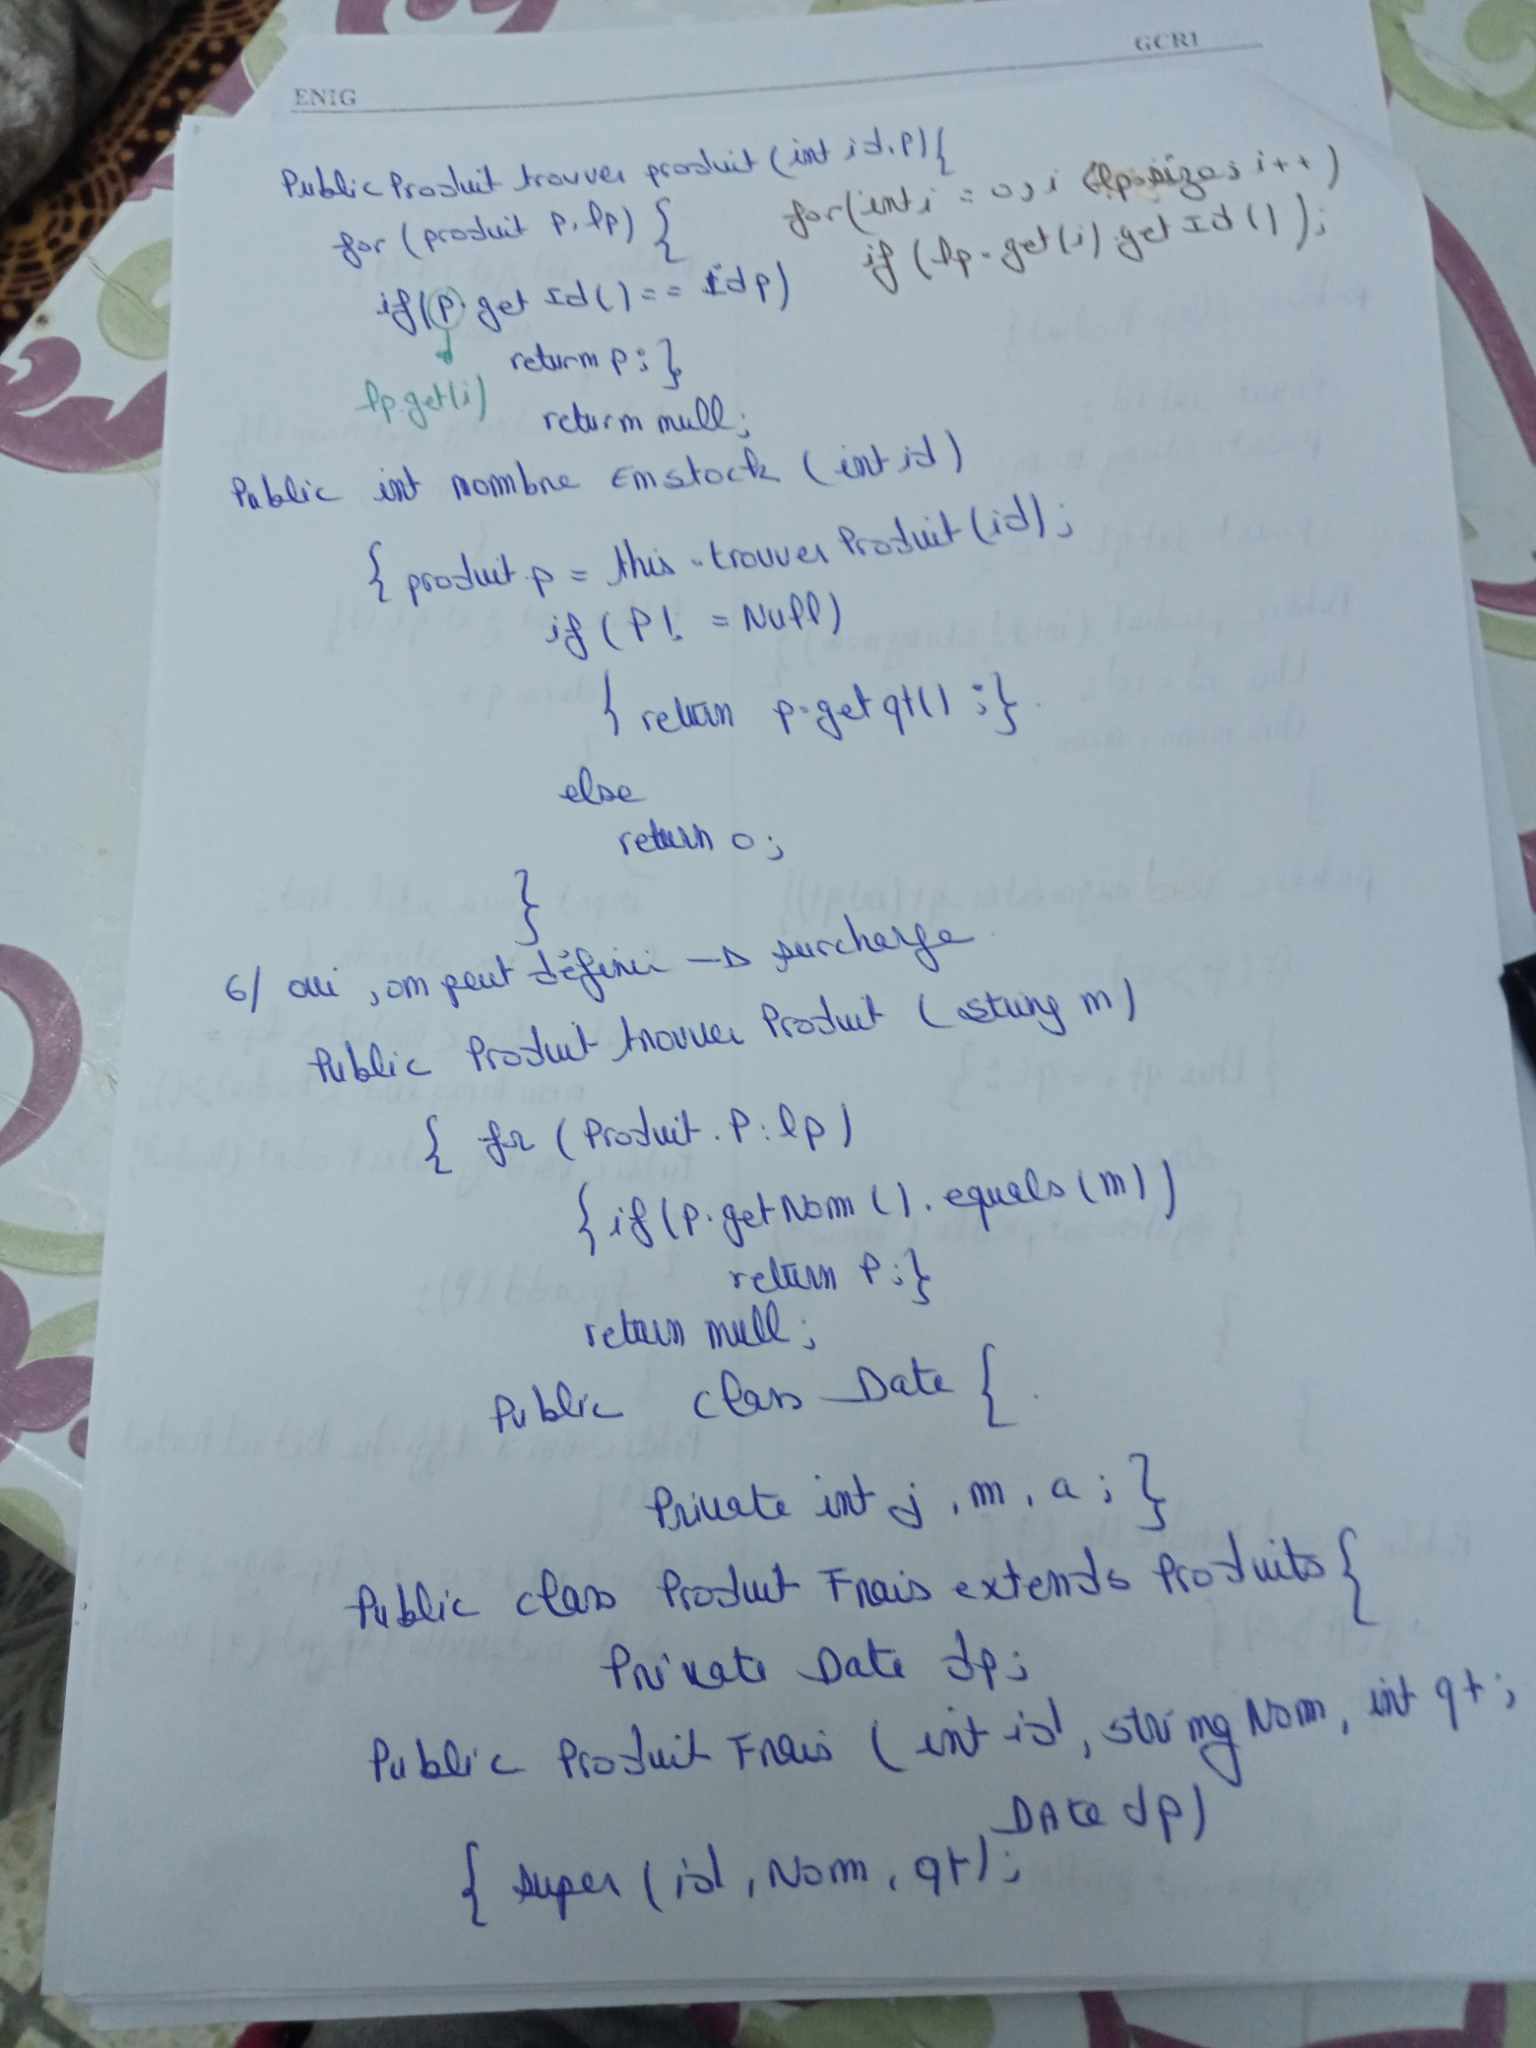 ENIG
GCR1
Public Produit trouver produit (int id.p){
for (produit p. lp) {
for(int i = 0; i < lp.size; i++)
if (p. get Id () == idp)
if (lp.get(i).get Id ());
return p;}
lp.get(i)
return null;
Public int nombre Enstock (int id)
{ produit p = this.trouver Produit (id);
if (P! = Null)
{ return p.get qt() ;}
else
return 0;
}
6/ oui, on peut définir → surcharge
Public Produit trouver Produit (string n)
{ for (Produit. P: lp)
{ if (P. get Nom (). equals (n))
return P;}
return null;
Public class Date {
Private int j, m, a; }
Public class Produit Frais extends Produits {
Private Date dp;
Public Produit Frais (int id, string Nom, int qt;
DAte dp)
{ super (id, Nom, qt);